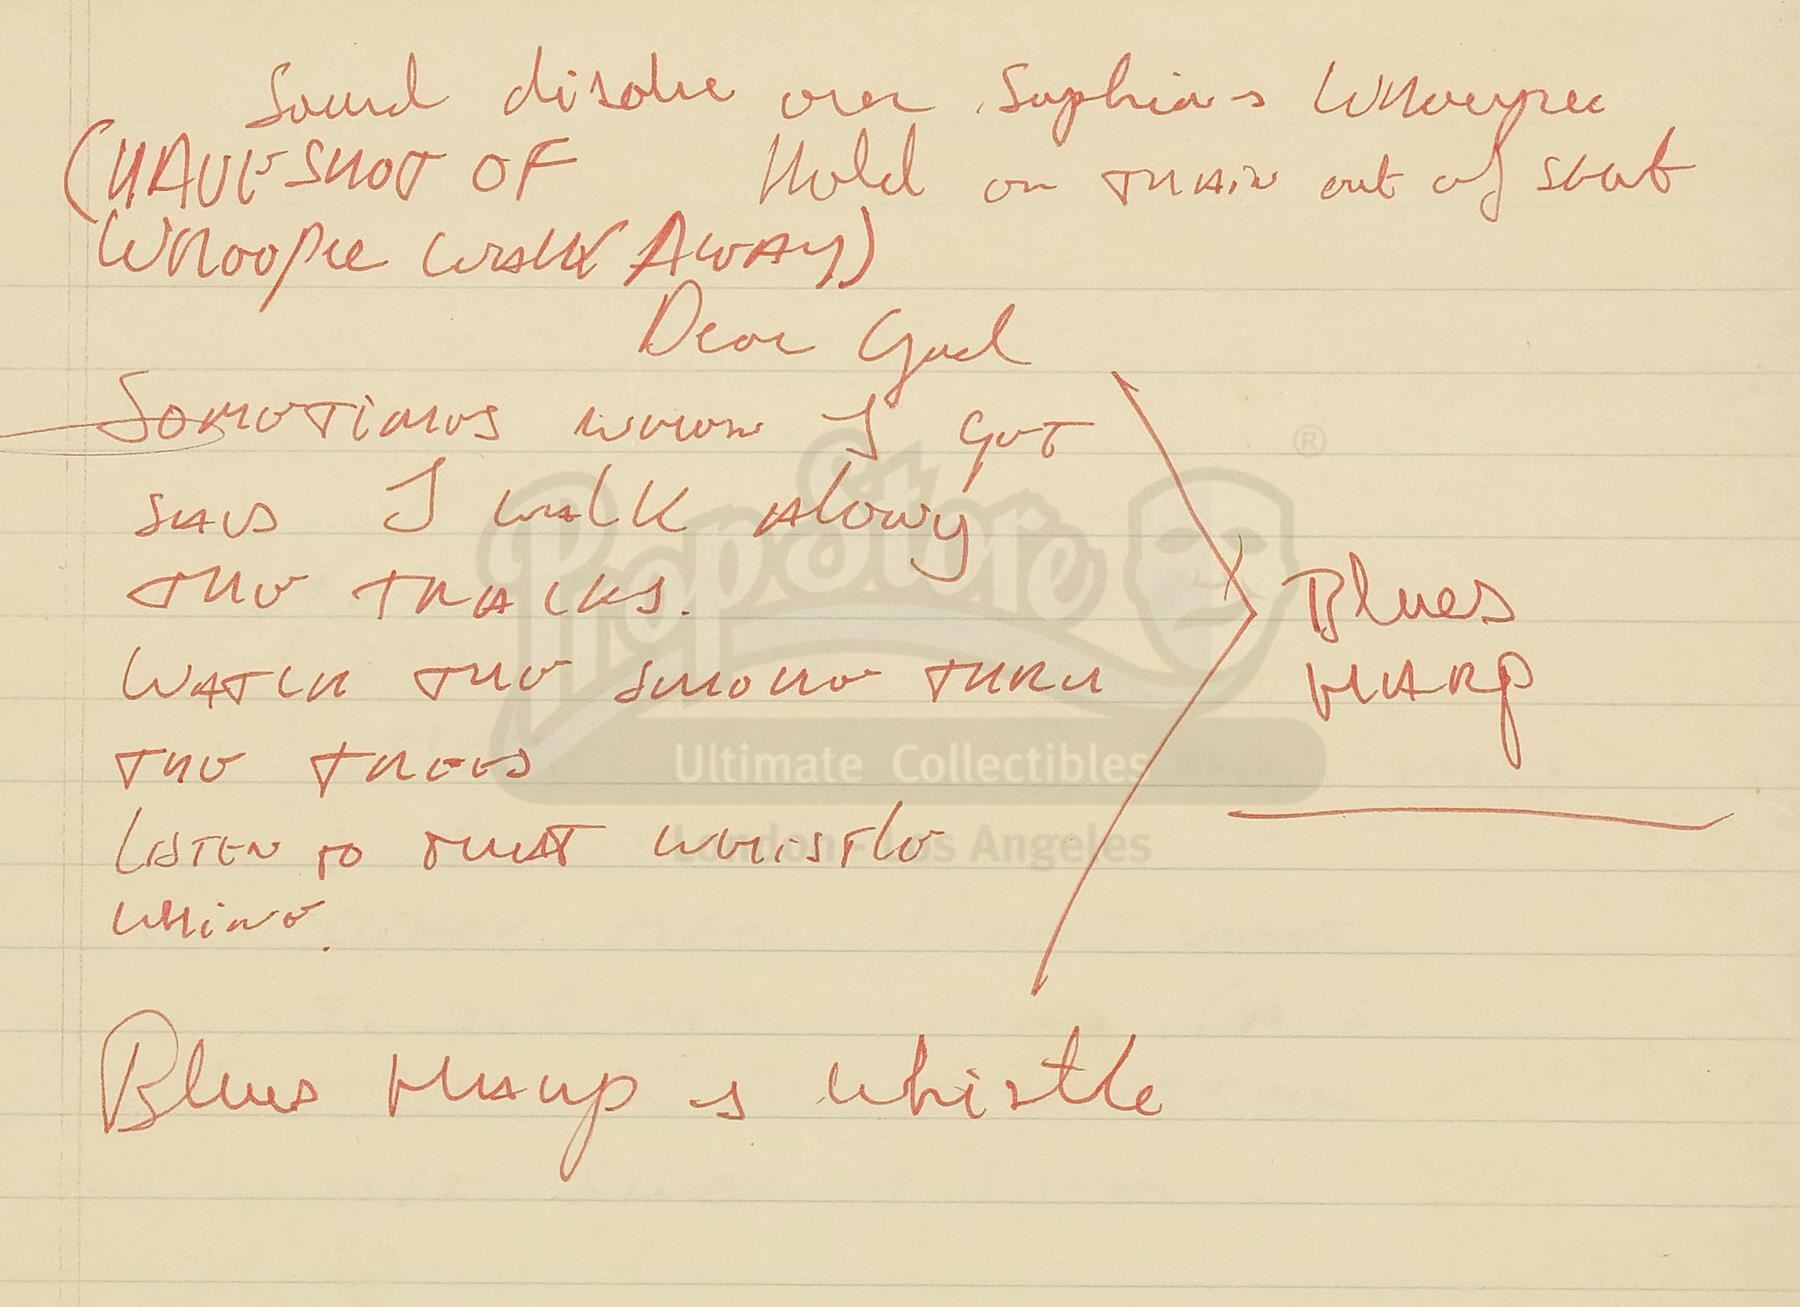 Sound disolve over Sophia → Whoopee
(HAVE SHOT OF Hold on TRAIN out of seat
Whoopee walk AWAY)
Dear God
SOMETIMES WHEN I GET
SAD I walk along
THE TRACKS.
WATCH THE SMOKE THRU
THE TREES
LISTEN TO THAT WHISTLE
WHINE.
Blues
HARP
Blues HARP → whistle
PropStore
®
Ultimate Collectibles
London - Los Angeles